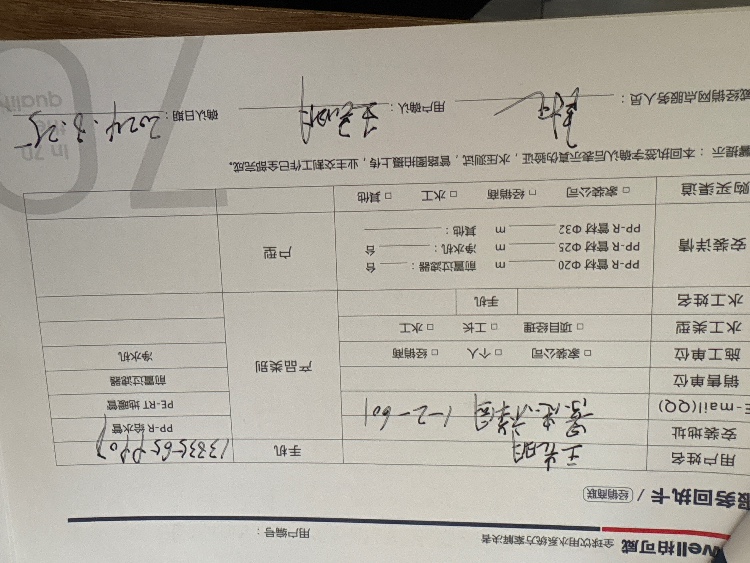 well柏可威 全球饮用水系统方案解决者
用户编号：
服务回执卡 / 经销商联
用户姓名 王光明 手机
安装地址 1-2-601
E-mail(QQ)
销售单位
施工单位 □ 家装公司 □ 个人 □ 经销商
水工类型 □ 项目经理 □ 工长 □ 水工
水工姓名 手机
产品类别
PP-R 给水管
PE-RT 地暖管
前置过滤器
净水机
安装详情
PP-R 管材 Φ20 m 前置过滤器： 台
PP-R 管材 Φ25 m 净水机： 台
PP-R 管材 Φ32 m 其他：
户型
购买渠道 □ 家装公司 □ 经销商 □ 水工 □ 其他
提示：本回执签字确认后表示真伪验证，水压测试，管路图拍摄上传，业主交割工作已全部完成。
威经销网点服务人员： 用户确认：王光明 确认日期：2024.3.25
In 70
quality